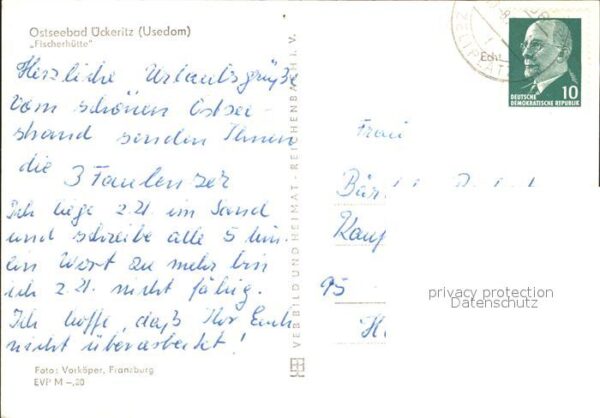 Ostseebad Ückeritz (Usedom)
„Fischerhütte"
Herzliche Urlaubsgrüße
vom schönen Ostsee-
strand senden Ihnen
die 3 Faulenzer
Ich liege z.Zt. im Sand
und schreibe alle 5 Min.
ein Wort zu mehr bin
ich z.Zt. nicht fähig.
Ich hoffe, daß Ihr Euch
nicht überarbeitet!
Foto: Vorköper, Franzburg
EVP M –,20
VEB BILD UND HEIMAT · REICHENBACH I. V.
Echt
DEUTSCHE
DEMOKRATISCHE REPUBLIK
10
Frau
95
privacy protection
Datenschutz